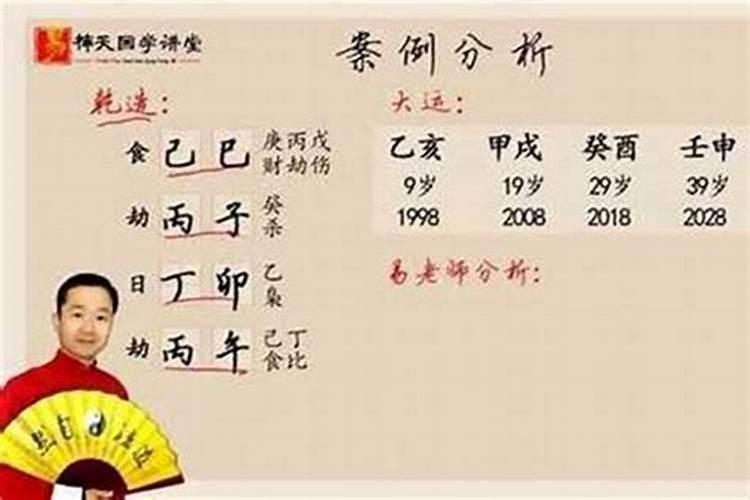 易 禅天国学讲堂
案例分析
乾造：
大运：
食 己 巳 庚丙戊
财劫伤
劫 丙 子 癸
杀
日 丁 卯 乙
枭
劫 丙 午 己丁
食比
乙亥 甲戌 癸酉 壬申
9岁 19岁 29岁 39岁
1998 2008 2018 2028
易老师分析：